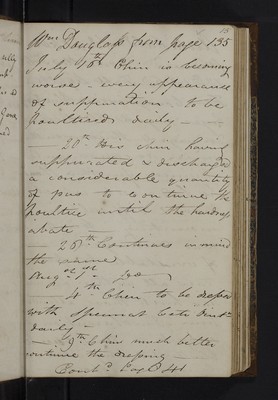 Wm Douglass from page 135
July 18th Chin is becoming
worse - every appearance
of suppuration to be
poulticed daily
20th His chin having
suppurated & discharged
a considerable quantity
of pus to continue the
poultice until the hardness
abate
26th Continues in mind
the same
Augst 1st
4th Chin to be dressed
with Spermat Ceti Ointt
daily
9th Chin much better
continue the dressing